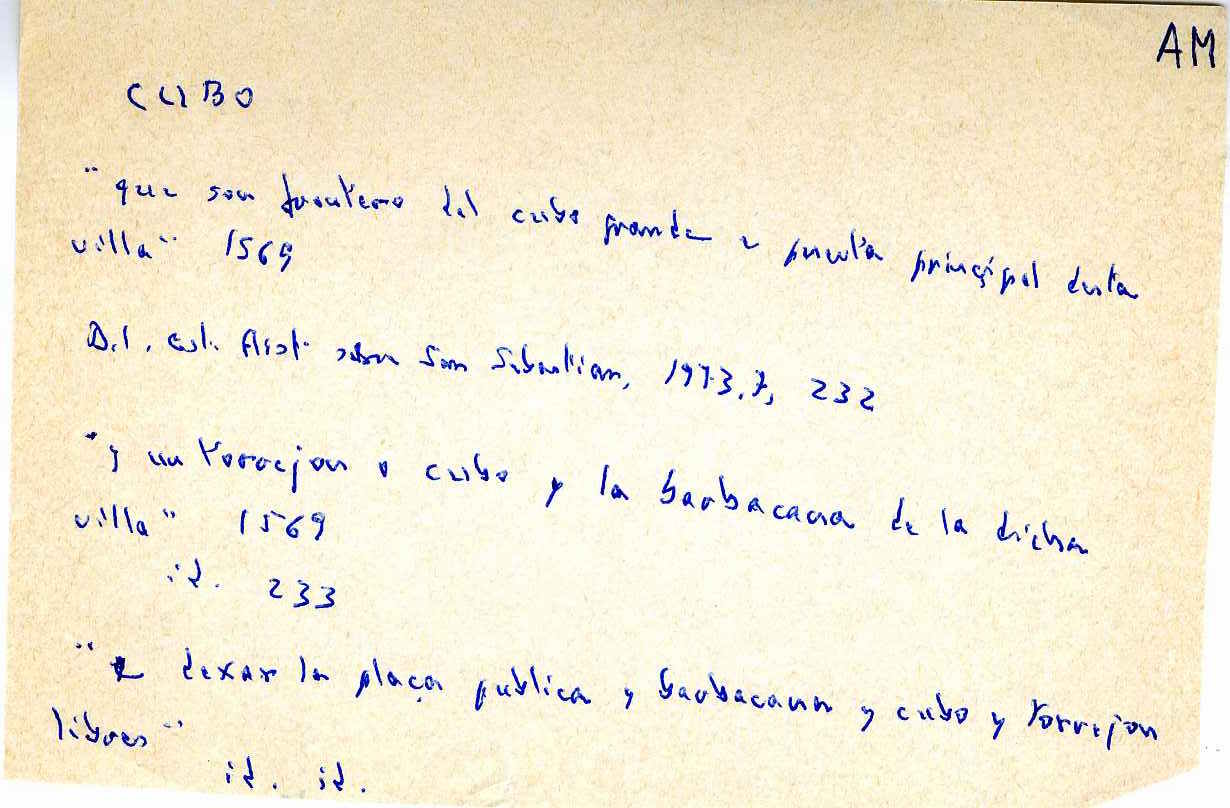 AM
CUBO
"que son frontero del cubo grande e puerta prinçipal desta
villa" 1569
Bol. est. Hist. sobre San Sebastian, 1973, 7, 232
"y un torrejon o cubo y la barbacana de la dicha
villa" 1569
id. 233
"e dexar la plaça publica y barbacana y cubo y torrejon
libres"
id. id.